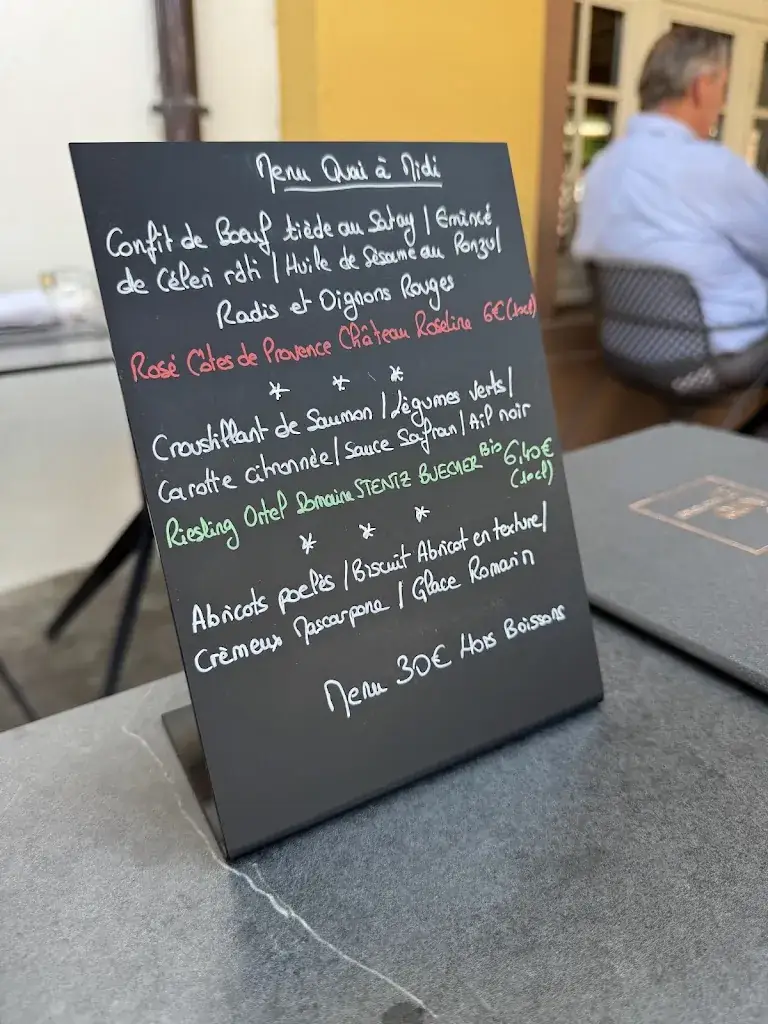 Menu Quai à Midi
Confit de Boeuf tiède au Satay / Emincé
de Céleri rôti / Huile de Sésame au Ponzu /
Radis et Oignons Rouges
Rosé Côtes de Provence Château Roseline 6€ (10cl)
* * *
Croustillant de Saumon / Légumes verts /
Carotte citronnée / Sauce Safran / Ail noir
Riesling Ortel Domaine STENTZ BUECHER Bio 6,40€
(10cl)
* * *
Abricots poelés / Biscuit Abricot en texture /
Crèmeux Mascarpone / Glace Romarin
Menu 30€ Hors Boissons